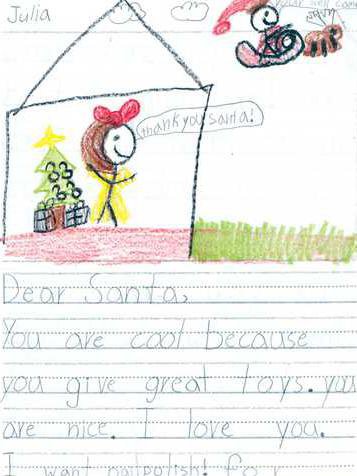 Julia
your well come
thank you santa!
Dear Santa,
You are cool because
you give great toys. you
are nice. I love you.
I want nailpolish! for